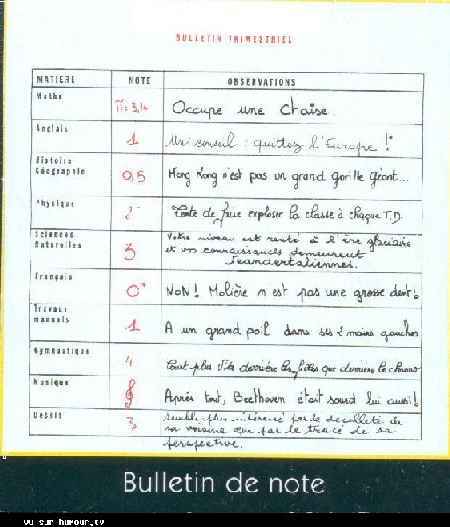 BULLETIN TRIMESTRIEL
MATIERE NOTE OBSERVATIONS
Maths π=3,14 Occupe une chaise.
Anglais 1 Un conseil : quittez l'Europe !
Histoire
Géographie 0,5 Hong Kong n'est pas un grand gorille géant...
Physique 2 Tente de faire exploser la classe à chaque T.D.
Sciences
Naturelles 3 Votre niveau est resté à l'ère glaciaire
et vos connaissances demeurent
Néandertaliennes.
Français 0 NON ! Molière n'est pas une grosse dent !
Travaux
manuels 1 A un grand poil dans ses 2 mains gauches
Gymnastique 4 Court plus vite derrière les filles que derrière le chrono
Musique Après tout, Beethoven était sourd lui aussi !
Dessin Semble plus intéressé par le décolleté de
sa voisine que par le tracé de sa
perspective.
Bulletin de note
vu sur humour.tv